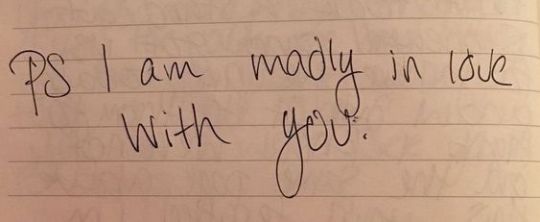 PS I am madly in love
with you.